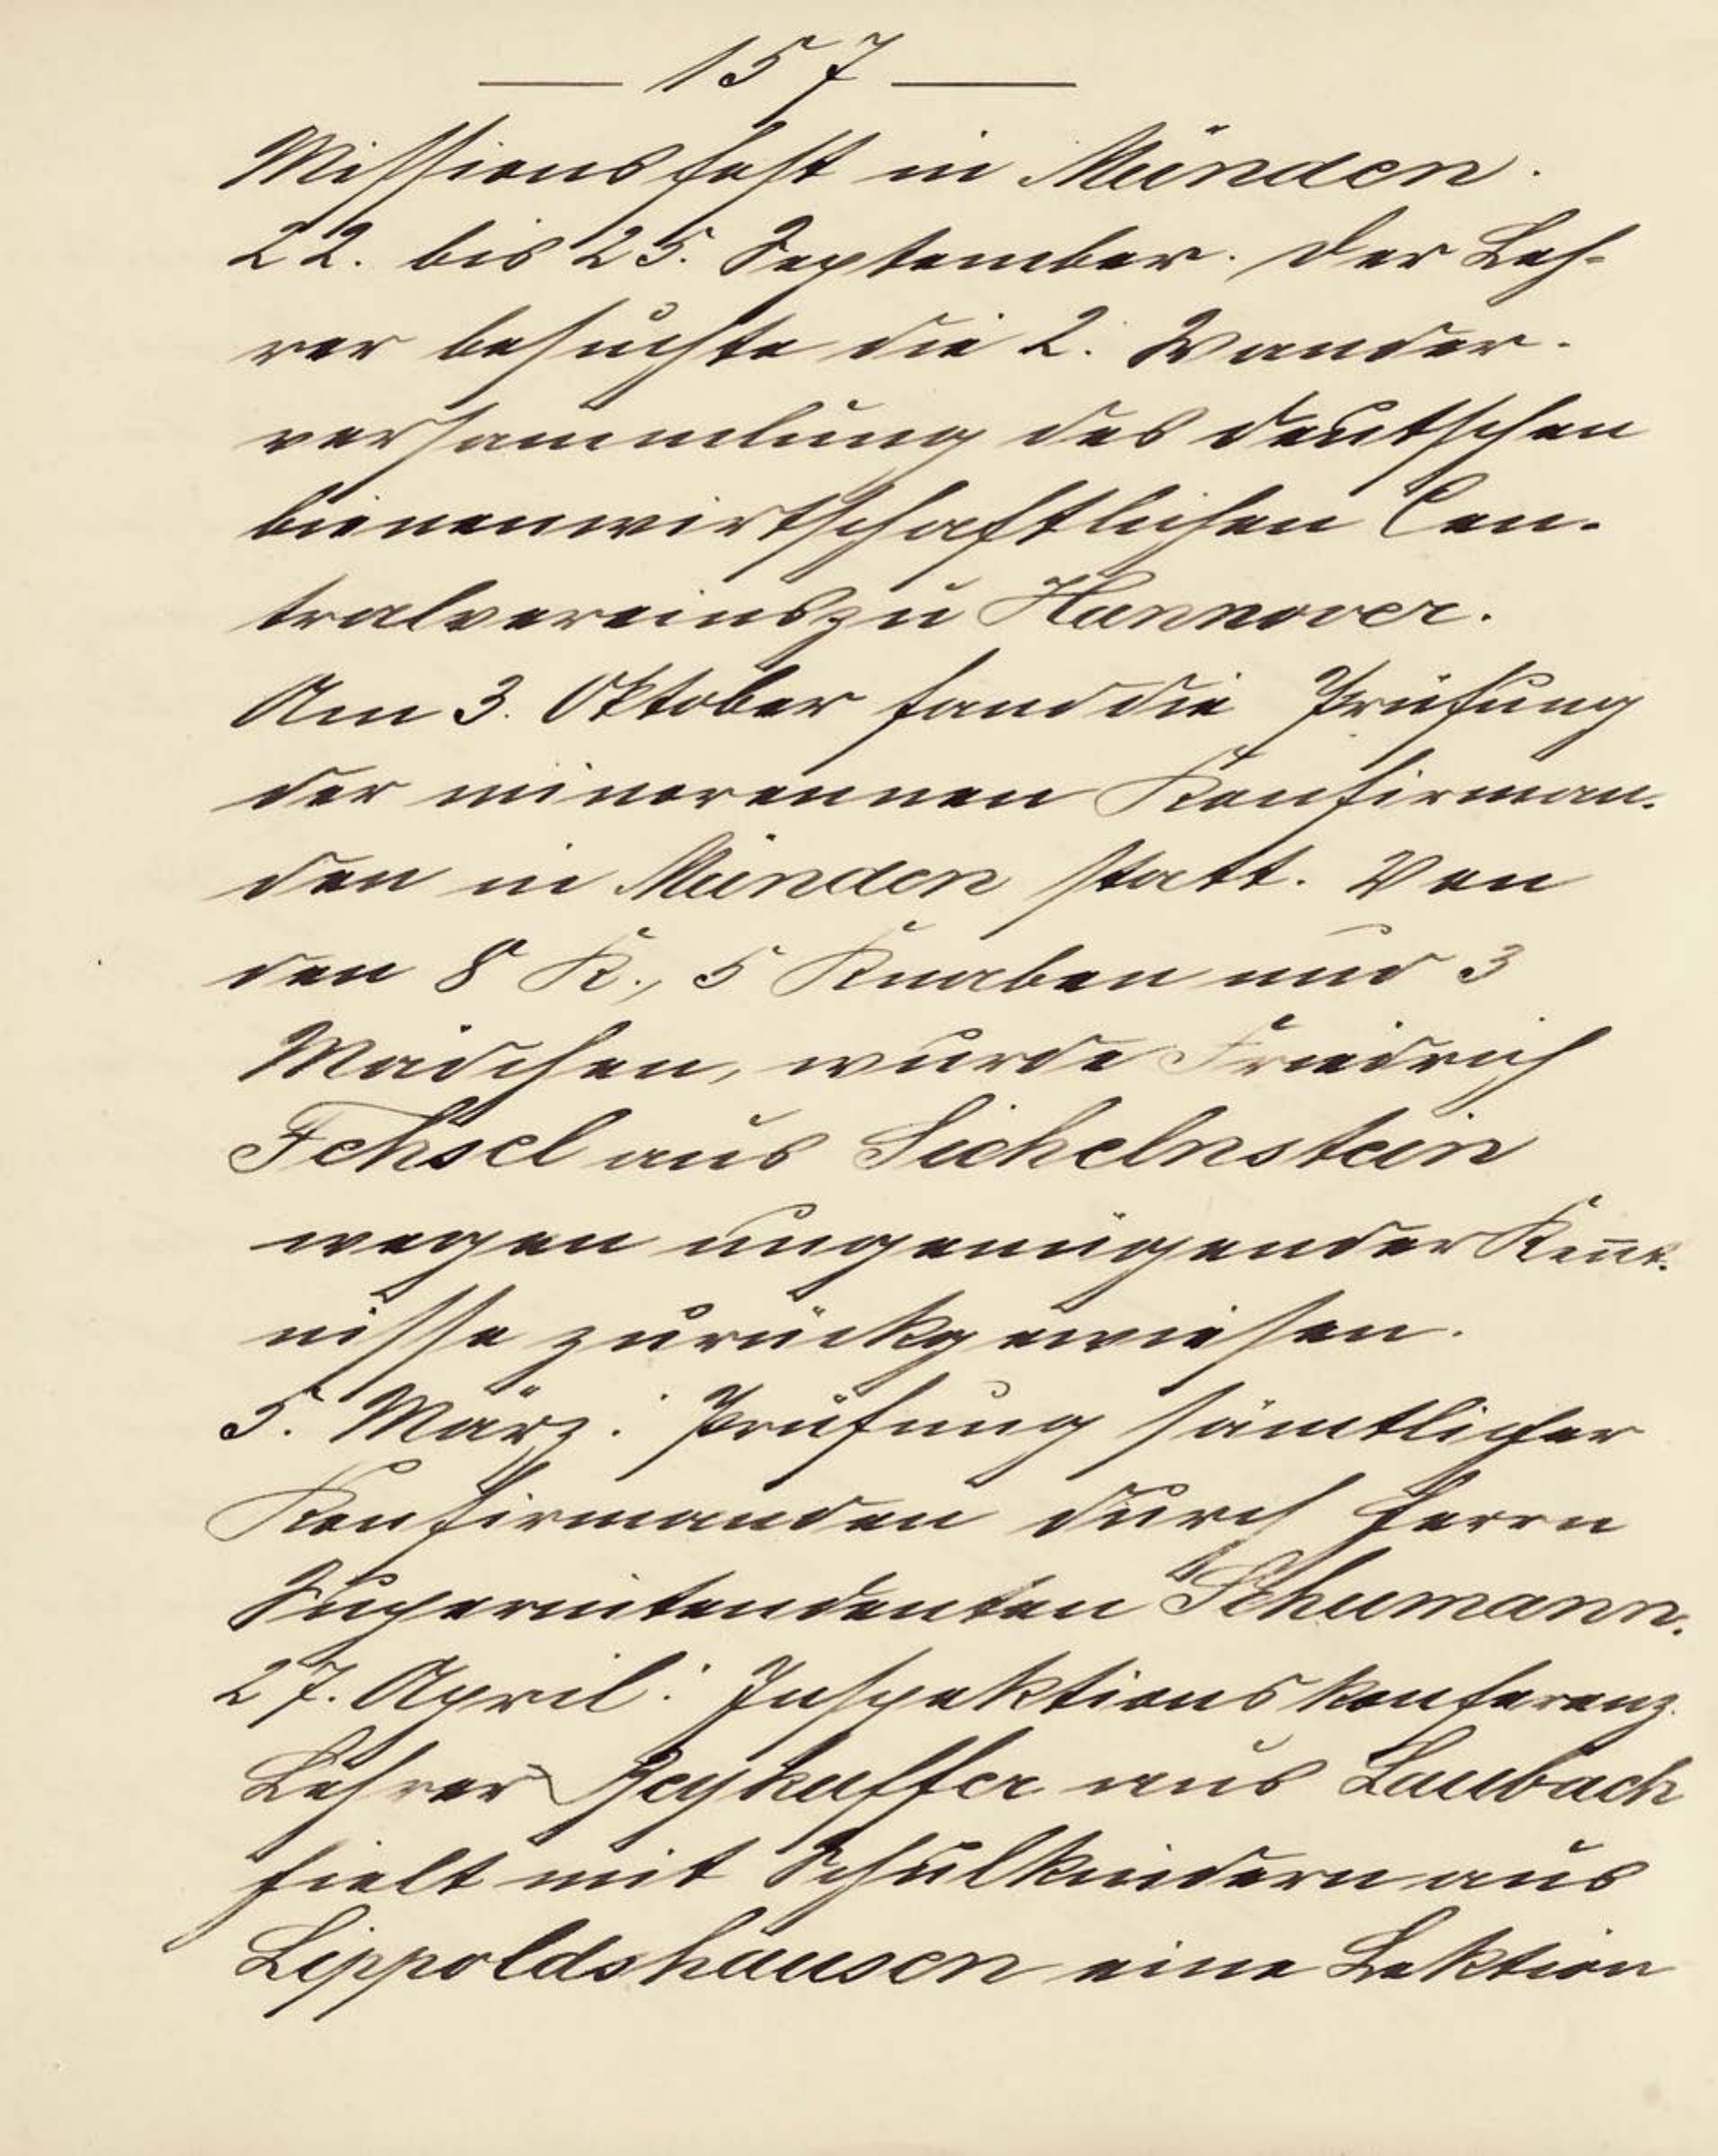 — 157 —
Missionsfest in Münden.
22. bis 25. September. Der Leh-
rer besuchte die 2. Wander-
versammlung des deutschen
bienenwirtschaftlichen Cen-
tralvereins zu Hannover.
Am 3. Oktober fand die Prüfung
der minorennen Konfirman-
den in Münden statt. Von
den 8 K., 5 Knaben und 3
Mädchen, wurde Friedrich
Fehsel aus Sichelnstein
wegen ungenügender Kennt-
nisse zurückgewiesen.
5. März: Prüfung sämtlicher
Konfirmanden durch Herrn
Superintendenten Schumann.
27. April: Inspektionskonferenz.
Lehrer aus Laubach
hielt mit Schulkindern aus
Lippoldshausen eine Lektion